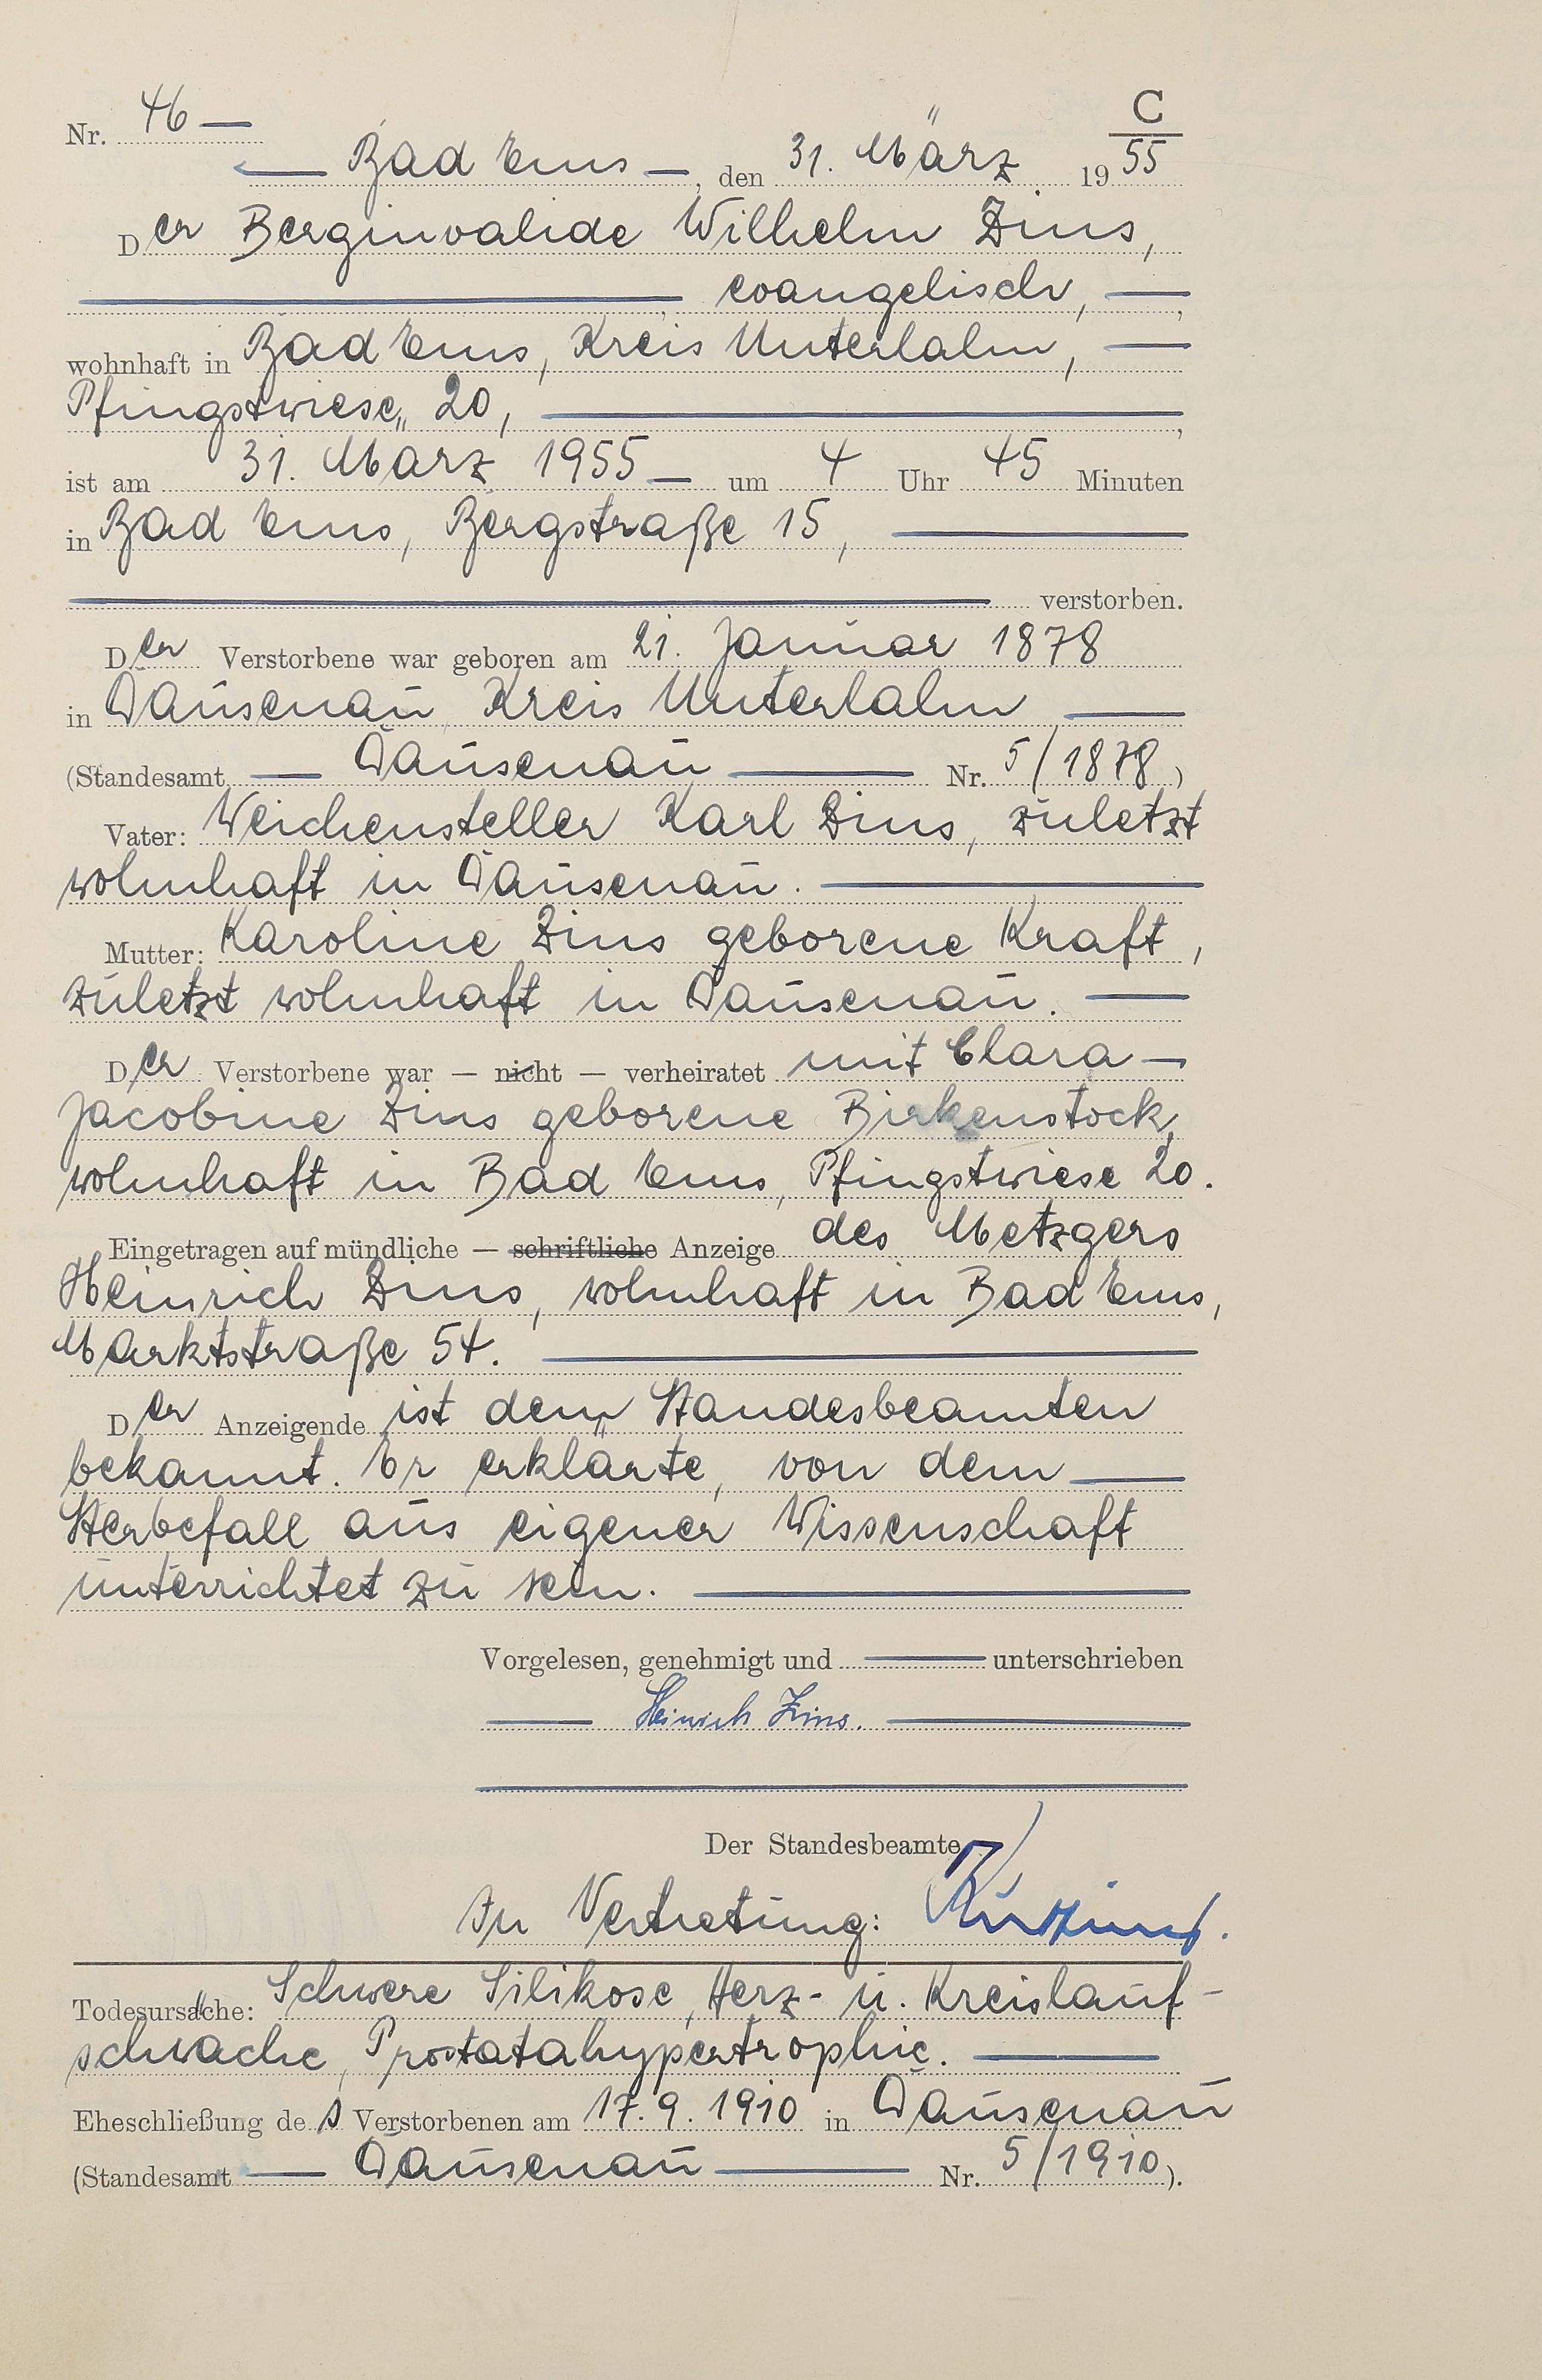 C
Nr. 46 —
— Bad Ems —, den 31. März 19 55
Der Berginvalide Wilhelm Zins,
evangelisch, —,
wohnhaft in Bad Ems, Kreis Unterlahn, —
Pfingstwiese 20,
ist am 31. März 1955 — um 4 Uhr 45 Minuten
in Bad Ems, Bergstraße 15,
verstorben.
Der Verstorbene war geboren am 21. Januar 1878
in Dausenau Kreis Unterlahn —
(Standesamt — Dausenau — Nr. 5/1878)
Vater: Weichensteller Karl Zins, zuletzt
wohnhaft in Dausenau. —
Mutter: Karoline Zins geborene Kraft,
zuletzt wohnhaft in Dausenau. —
Der Verstorbene war — nicht — verheiratet mit Clara —
Jacobine Zins geborene Birkenstock,
wohnhaft in Bad Ems, Pfingstwiese 20.
Eingetragen auf mündliche — schriftliche Anzeige des Metzgers
Heinrich Zins, wohnhaft in Bad Ems,
Marktstraße 54. —
Der Anzeigende ist dem Standesbeamten
bekannt. Er erklärte, von dem —
Sterbefall aus eigener Wissenschaft
unterrichtet zu sein. —
Vorgelesen, genehmigt und — unterschrieben
— Heinrich Zins. —
Der Standesbeamte
In Vertretung:
Todesursache: Schwere Silikose, Herz- u. Kreislauf-
schwäche, Prostatahypertrophie. —
Eheschließung des Verstorbenen am 17.9.1910 in Dausenau
(Standesamt — Dausenau — Nr. 5/1910).